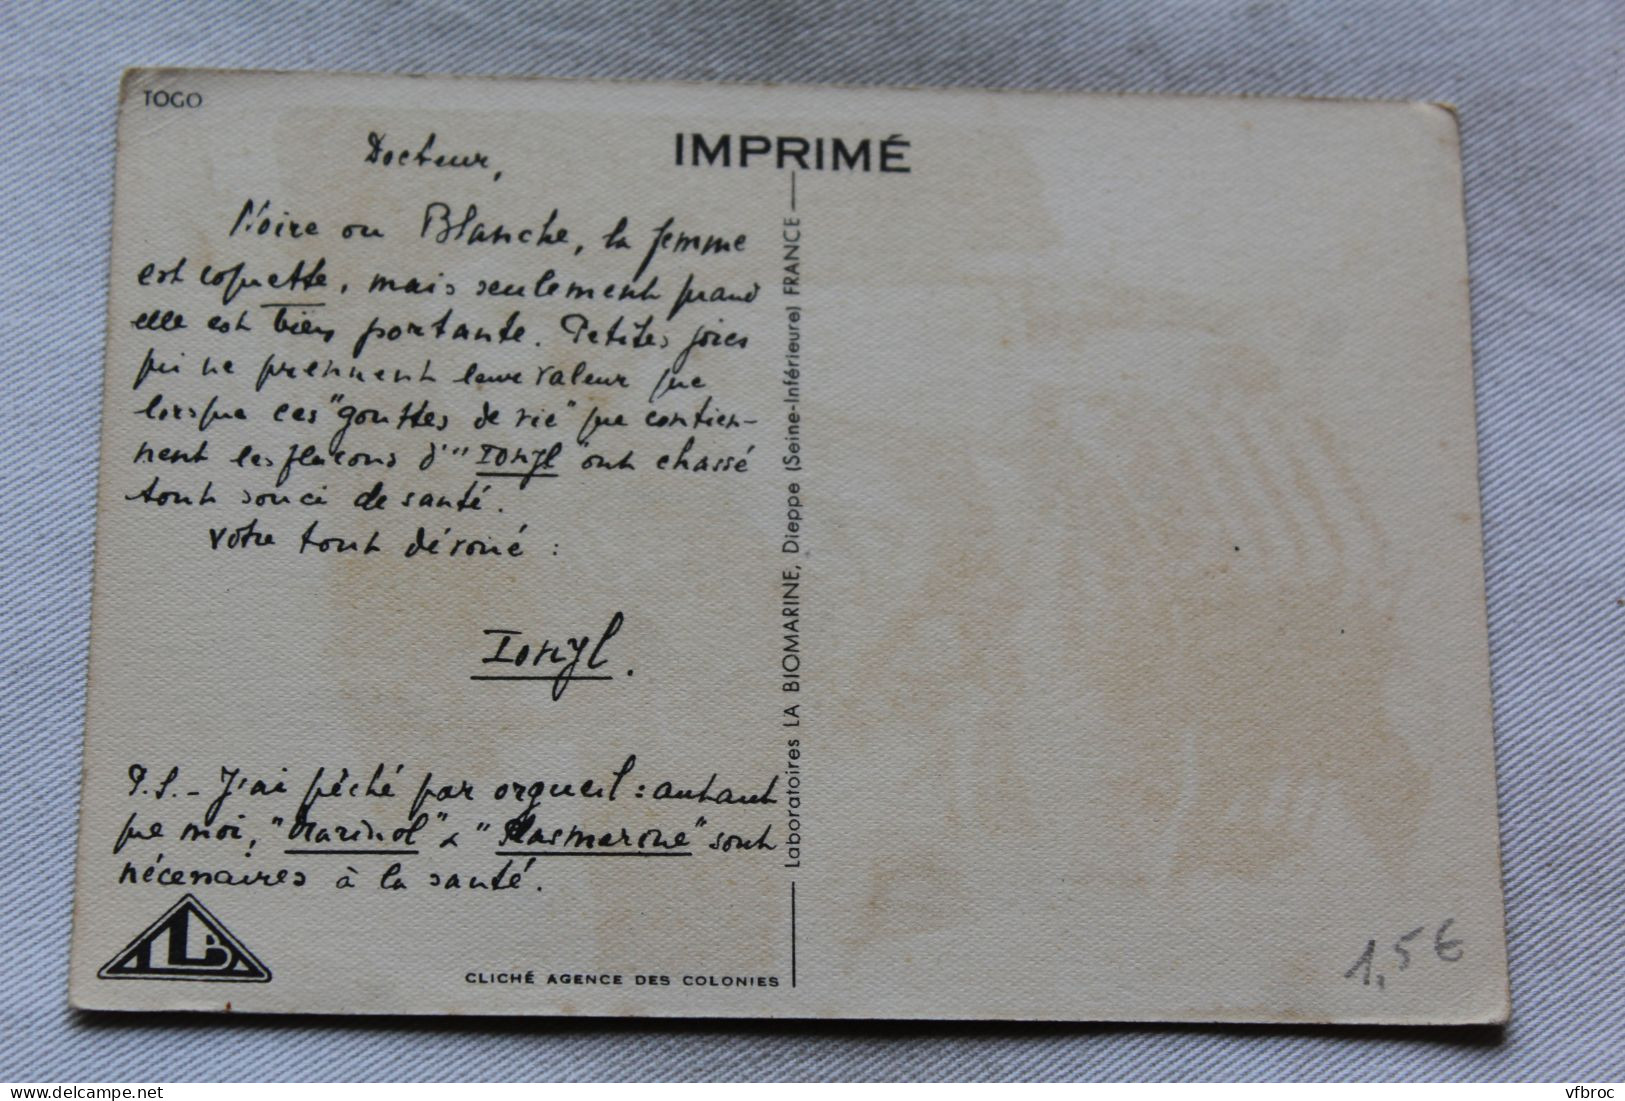 TOGO
IMPRIMÉ
Docteur,
Noire ou Blanche, la femme
est coquette, mais seulement quand
elle est bien portante. Petites joies
qui ne prennent leur valeur que
lorsque ces "gouttes de vie" que contien-
nent les flacons d'"Ionyl" ont chassé
tout souci de santé.
Votre tout dévoué :
Ionyl.
P.S. - J'ai péché par orgueil : autant
que moi, "Marinol" & "Plasmarine" sont
nécessaires à la santé.
LB
CLICHÉ AGENCE DES COLONIES
Laboratoires LA BIOMARINE, Dieppe (Seine-Inférieure) FRANCE
1,5€
vfbroc